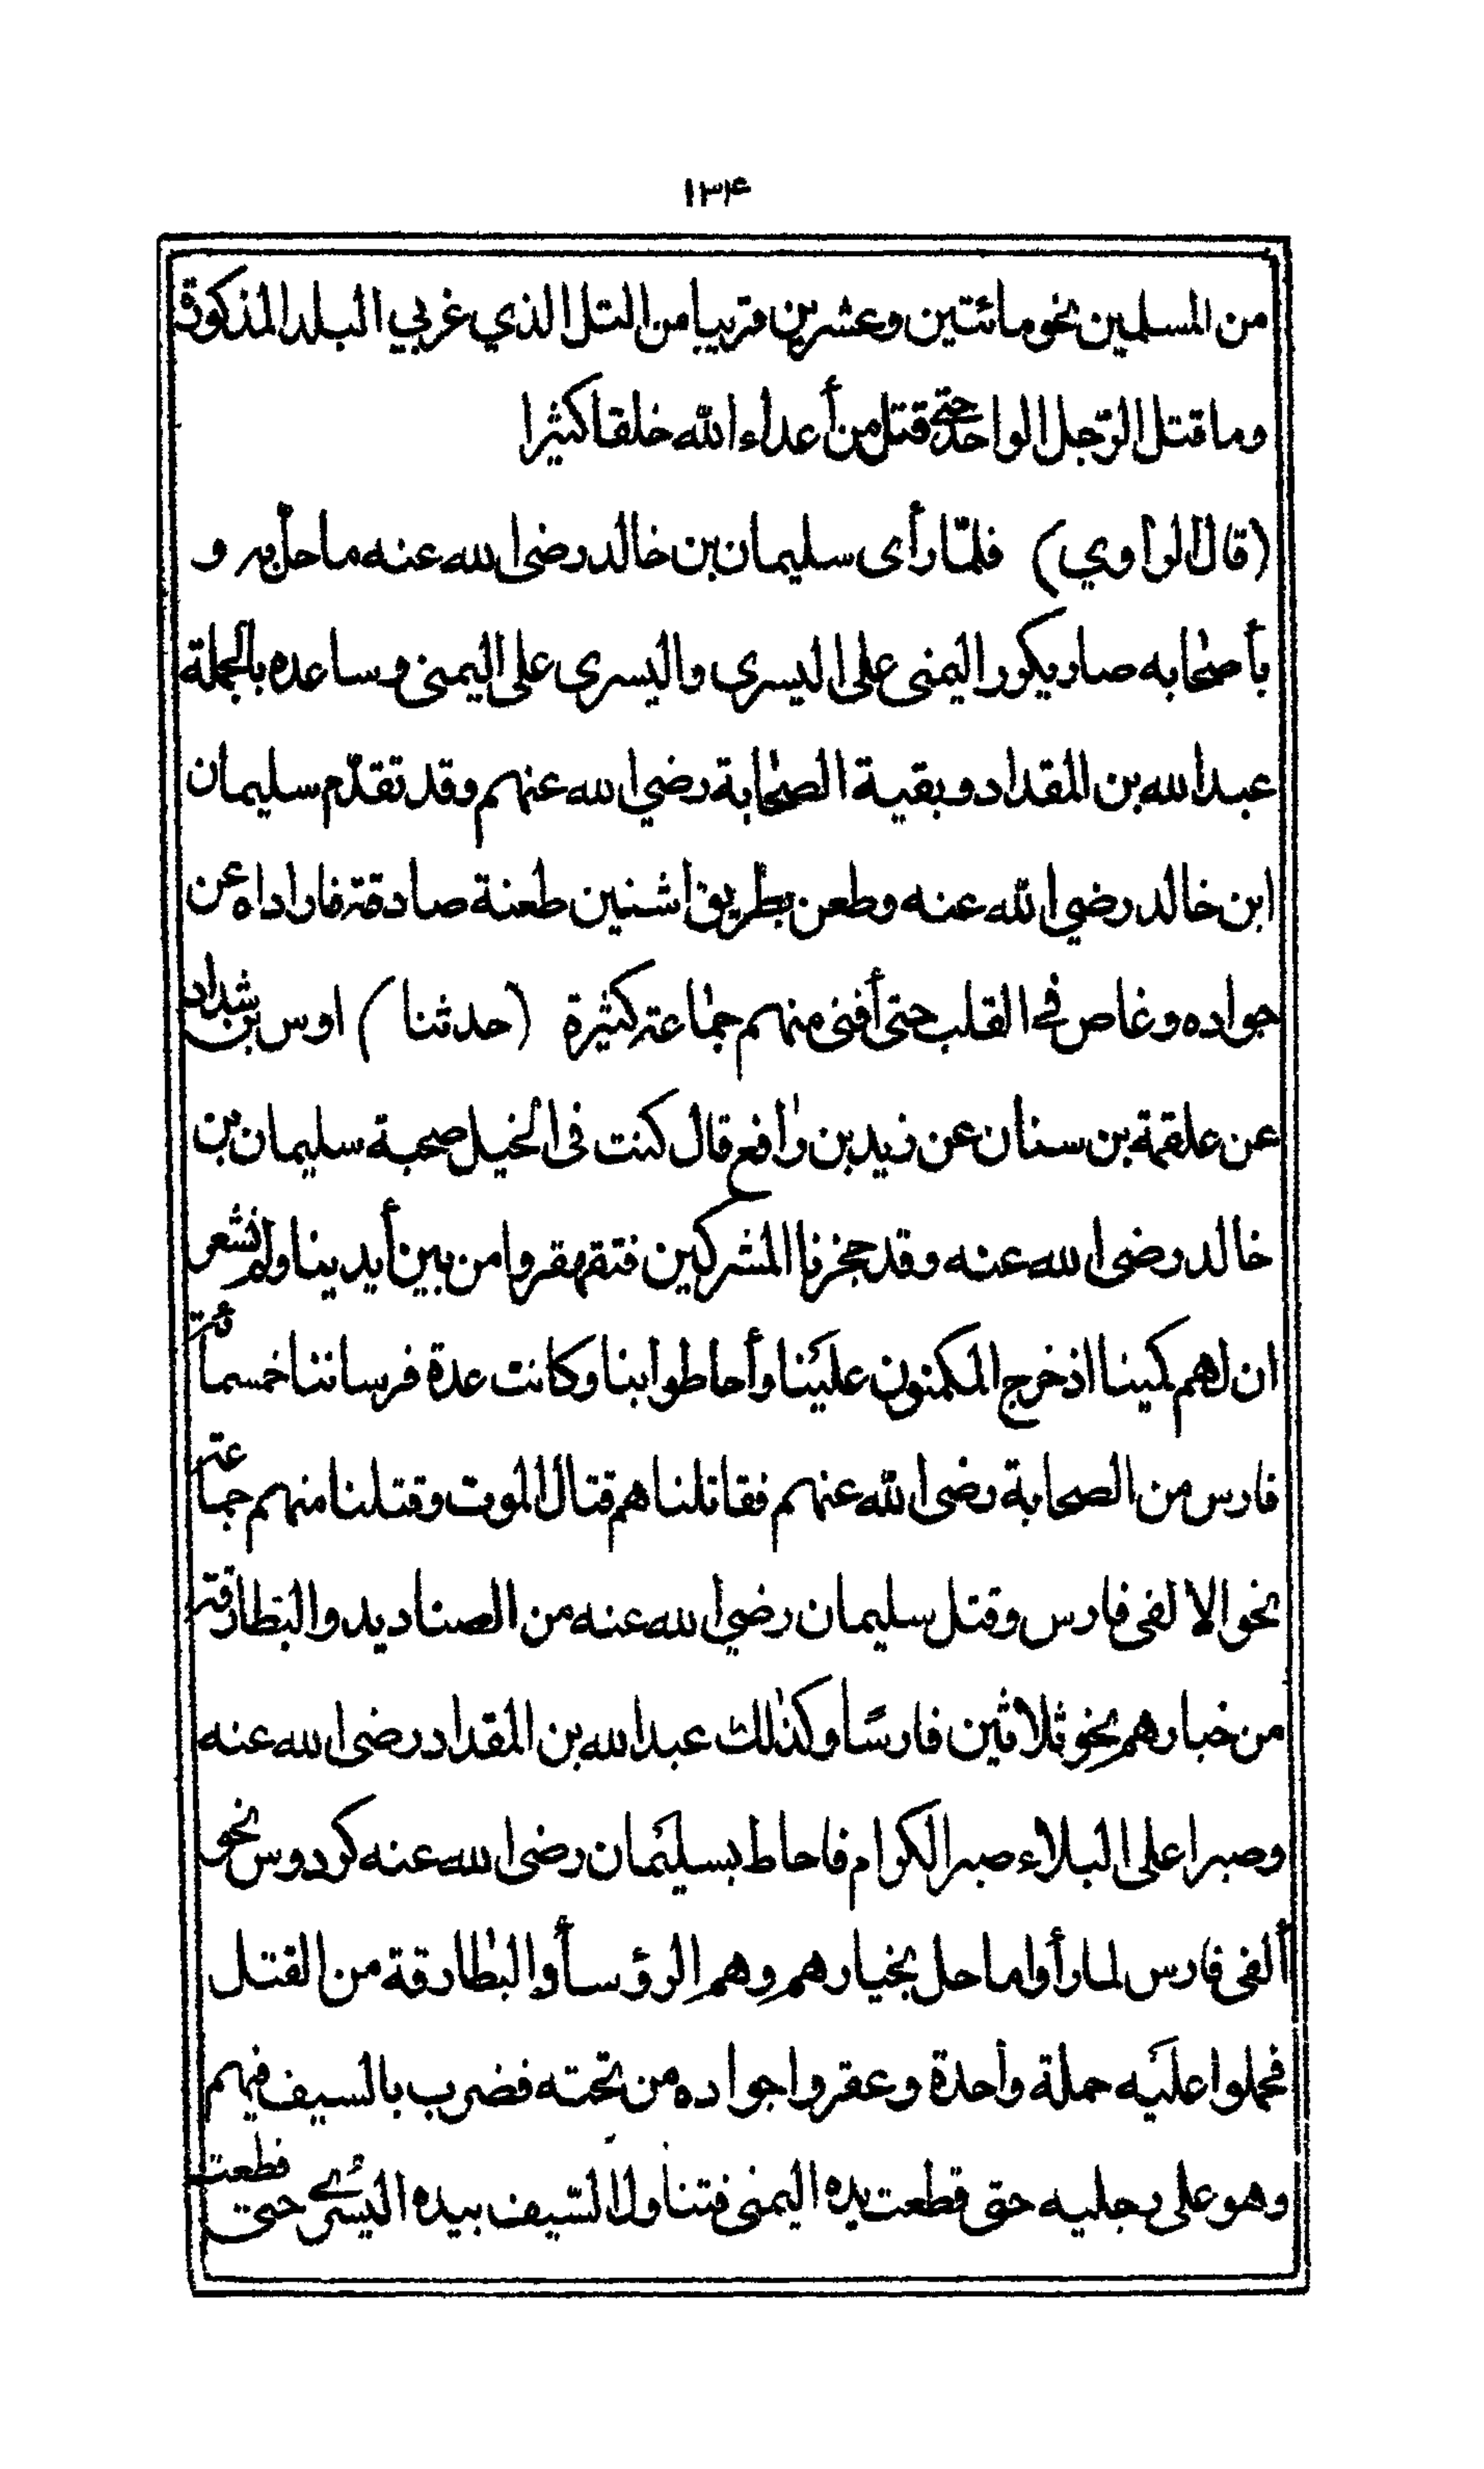 ١٣۴
من المسلمين نحو مائتين وعشرين قريبا من التل الذي غربي البلد المذكورة
وما قتل الرّجل الواحد حتى قتل من أعداء الله خلقا كثيرا
(قال الراوي) فلمّا رأى سليمان بن خالد رضى الله عنه ما حلّ به و
بأصحابه صار يكور اليمنى على اليسرى واليسرى على اليمنى وساعده بالجملة
عبد الله بن المقداد وبقية الصحابة رضي الله عنهم وقد تقدّم سليمان
ابن خالد رضي الله عنه وطعن بطريق اشنين طعنة صادقة فاراداه عن
جواده وغاص في القلب حتى أفنى منهم جماعة كثيرة (حدثنا) اوس بن شداد
عن علقمة بن سنان عن زيد بن رافع قال كنت فى الخيل صحبة سليمان بن
خالد رضى الله عنه وقد حجزنا المشركين فتقهقروا من بين أيدينا ولم نشعر
ان لهم كمينا اذ خرج المكمنون علينا وأحاطوا بنا وكانت عدة فرساننا خمسمائة
فارس من الصحابة رضى الله عنهم فقاتلناهم قتال الموت وقتلنا منهم جماعة
نحو الالفى فارس وقتل سليمان رضي الله عنه من الصناديد والبطارقة
من خبارهم نحو ثلاثين فارسًا وكذلك عبد الله بن المقداد رضى الله عنه
وصبرا على البلاء صبر الكرام فاحاط بسليمان رضى الله عنه كردوس نحو
ألفى فارس لما رأوا ما حل بخيارهم وهم الرؤسأ والبطارقة من القتل
فحملوا عليه حملة واحدة وعقروا جواده من تحته فضرب بالسيف فيهم
وهو على رجليه حتى قطعت يده اليمنى فتناول السّيف بيده اليسرى حتى قطعت